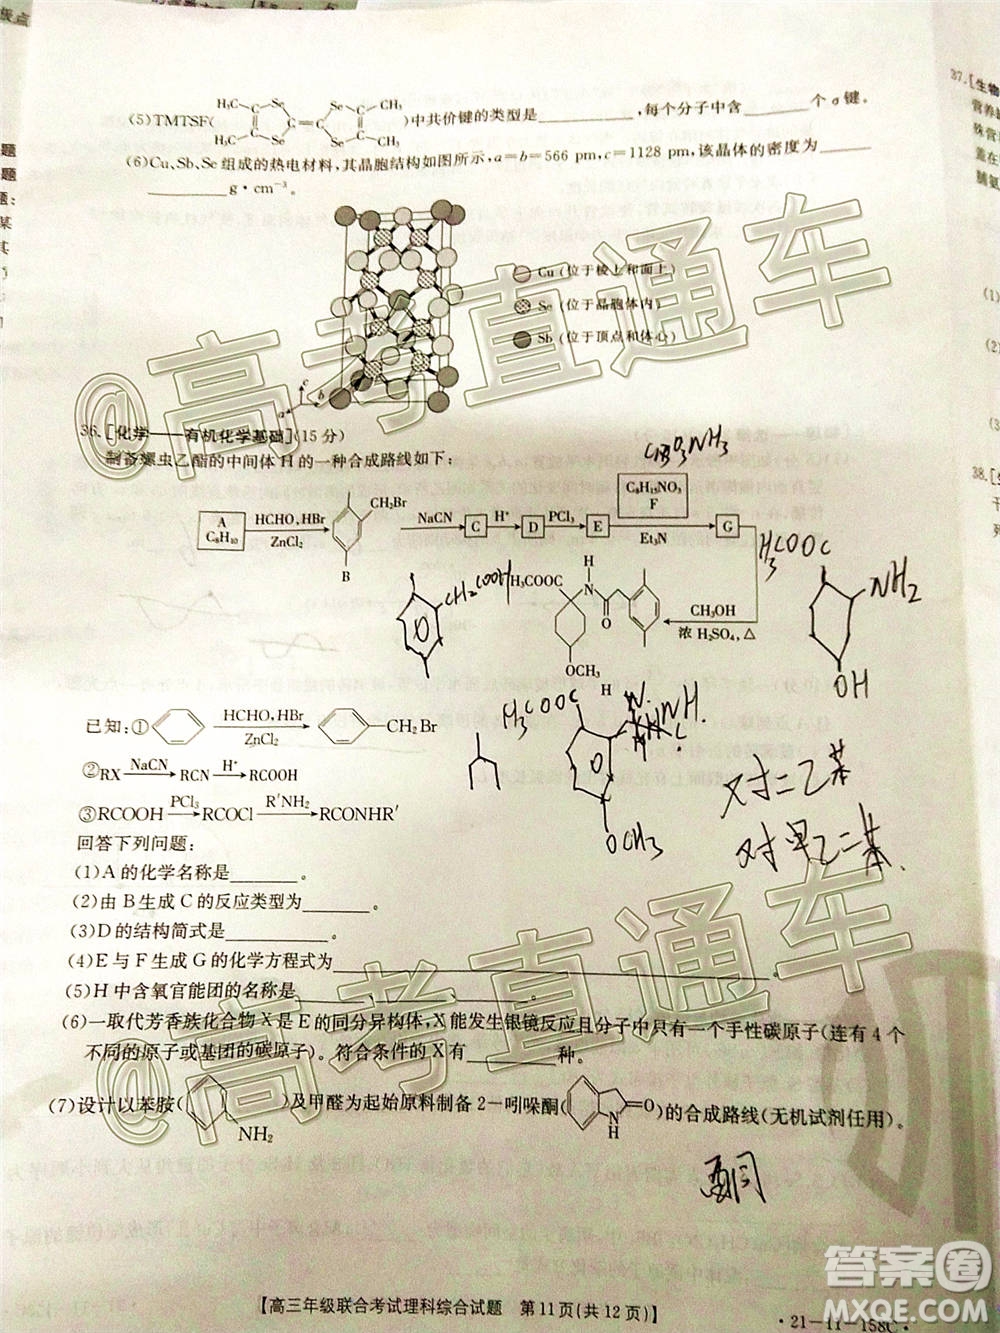 (5)TMTSF( H₃C H₃C Se Se Se Se CH₃ CH₃ )中共价键的类型是______,每个分子中含______个σ键。
(6)Cu、Sb、Se组成的热电材料,其晶胞结构如图所示,a=b=566 pm,c=1128 pm,该晶体的密度为______
______g·cm⁻³。
Cu (位于棱上和面上)
Se (位于晶胞体内)
Sb (位于顶点和体心)
c
b
a
36.[化学——有机化学基础](15分)
制备螺虫乙酯的中间体H的一种合成路线如下:
C₈H₁₅NO₃
F
A
C₈H₁₀
HCHO,HBr
ZnCl₂
CH₂Br
B
NaCN
C
H⁺
D
PCl₃
E
Et₃N
G
CH₃OH
浓 H₂SO₄,△
H₃COOC
H
N
O
OCH₃
H
CH₂COOH
H₃COOC
NH₂
OH
H₃COOC
OCH₃
对二乙苯
对甲乙二苯
已知:① HCHO,HBr ZnCl₂ CH₂Br
②RX NaCN RCN H⁺ RCOOH
③RCOOH PCl₃ RCOCl R′NH₂ RCONHR′
回答下列问题:
(1)A的化学名称是______。
(2)由B生成C的反应类型为______。
(3)D的结构简式是______。
(4)E与F生成G的化学方程式为______。
(5)H中含氧官能团的名称是______。
(6)一取代芳香族化合物X是E的同分异构体,X能发生银镜反应且分子中只有一个手性碳原子(连有4个
不同的原子或基团的碳原子)。符合条件的X有______种。
(7)设计以苯胺( NH₂ )及甲醛为起始原料制备2-吲哚酮( N H O )的合成路线(无机试剂任用)。
酮
【高三年级联合考试理科综合试题 第11页(共12页)】
·21-11-158C·
@高考直通车
@高考直通车
答案圈
MXQE.COM
37.[生物
38.[生
(1)
(2)